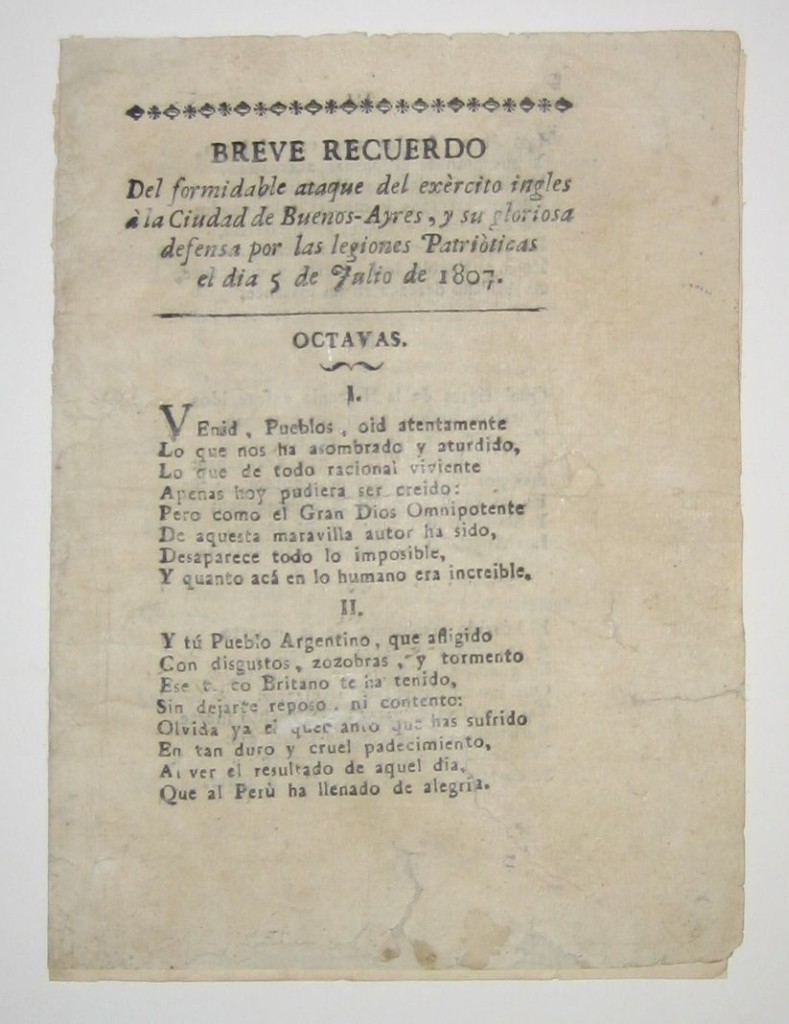 BREVE RECUERDO
Del formidable ataque del exèrcito ingles
à la Ciudad de Buenos-Ayres, y su gloriosa
defensa por las legiones Patriòticas
el dia 5 de Julio de 1807.
OCTAVAS.
I.
VEnid, Pueblos, oid atentamente
Lo que nos ha asombrado y aturdido,
Lo que de todo racional viviente
Apenas hoy pudiera ser creido:
Pero como el Gran Dios Omnipotente
De aquesta maravilla autor ha sido,
Desaparece todo lo imposible,
Y quanto acá en lo humano era increible.
II.
Y tú Pueblo Argentino, que afligido
Con disgustos, zozobras, y tormento
Ese Britano te ha tenido,
Sin dejarte reposo, ni contento:
Olvida ya el que has sufrido
En tan duro y cruel padecimiento,
Al ver el resultado de aquel dia,
Que al Perù ha llenado de alegria.